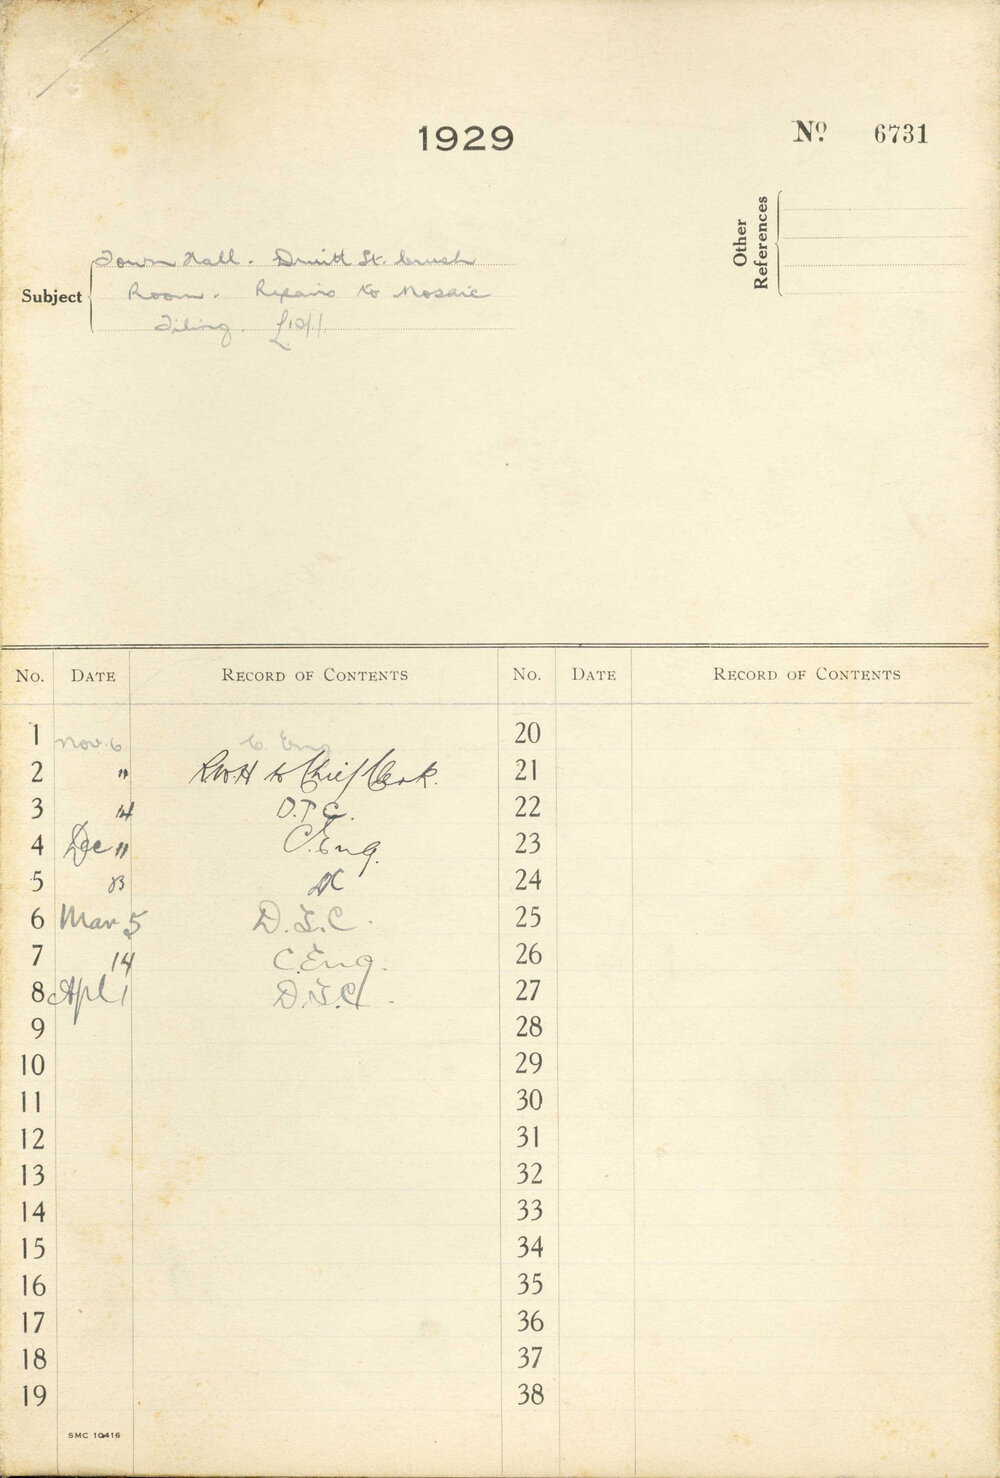 1929
Nº 6731
Other
References
Town Hall. Druitt St. Crush
Subject
Room. Repairs to Mosaic
Tiling. £10/1/
No. DATE RECORD OF CONTENTS No. DATE RECORD OF CONTENTS
1 Nov. 6 C. Eng. 20
2 " to Chief Clerk. 21
3 14 D.T.C. 22
4 Dec " C. Eng. 23
5 24
6 Mar 5 D.T.C. 25
7 14 C. Eng. 26
8 Apl 1 D.T.C. 27
9 28
10 29
11 30
12 31
13 32
14 33
15 34
16 35
17 36
18 37
19 38
SMC 10416